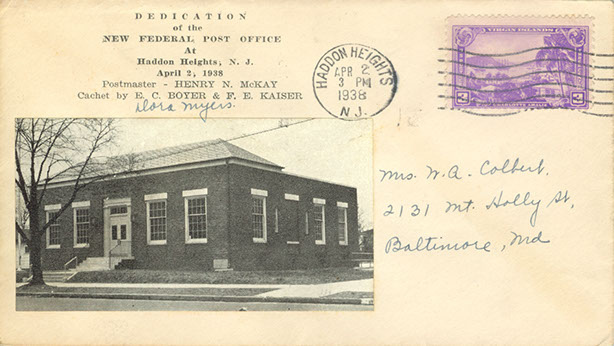 DEDICATION
of the
NEW FEDERAL POST OFFICE
At
Haddon Heights, N. J.
April 2, 1938
Postmaster - HENRY N. McKAY
Cachet by E. C. BOYER & F. E. KAISER
Dora Myers.
HADDON HEIGHTS
APR 2
3 PM
1938
N. J.
VIRGIN ISLANDS
3 3
Mrs. W. A. Colbert.
2131 Mt. Holly St,
Baltimore, Md